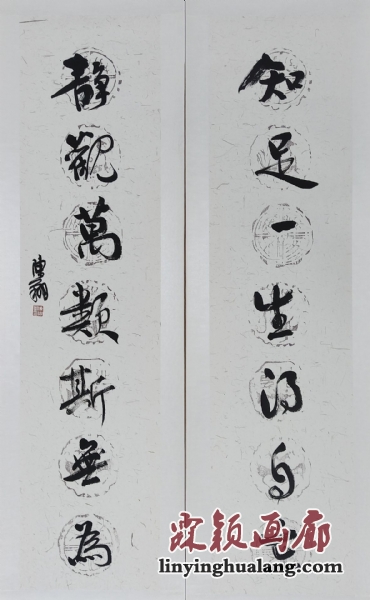 知足一生得自在
靜觀萬類斯無為
霖颖画廊
linyinghualang.com